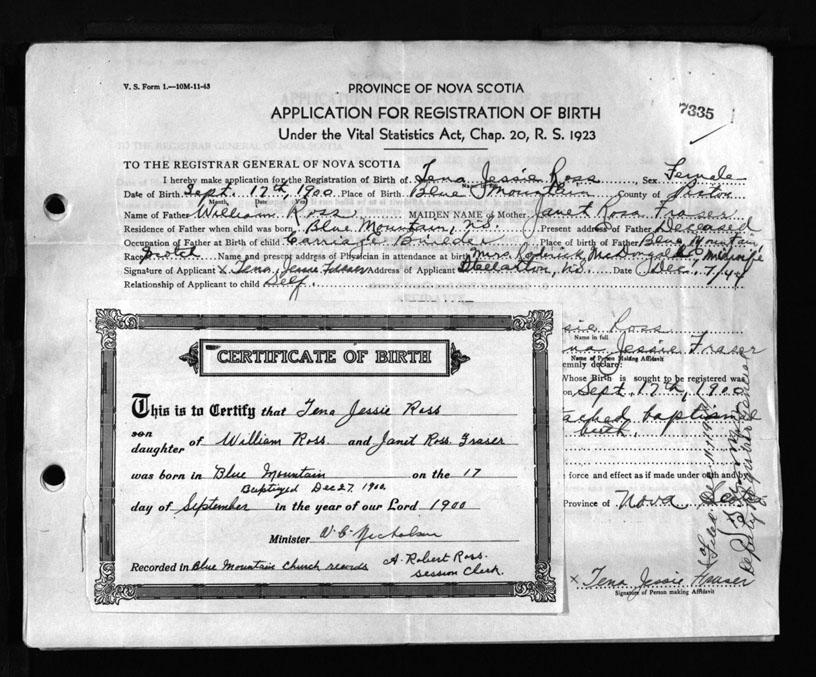 V. S. Form 1.—10M-11-43
PROVINCE OF NOVA SCOTIA
APPLICATION FOR REGISTRATION OF BIRTH
7335
Under the Vital Statistics Act, Chap. 20, R. S. 1923
TO THE REGISTRAR GENERAL OF NOVA SCOTIA
I hereby make application for the Registration of Birth of Tena Jessie Ross Sex Female
Date of Birth Sept. 17th, 1900 Place of Birth Blue Mountain County of Pictou
Name of Father William Ross MAIDEN NAME of Mother Janet Ross Fraser
Residence of Father when child was born, Blue Mountain, N.S. Present address of Father Deceased
Occupation of Father at Birth of child Carriage Builder Place of birth of Father Blue Mountain,
Race Scotch Name and present address of Physician in attendance at birth Mrs. Roderick McDougall Midwife
Signature of Applicant x Tena Jessie Fraser Address of Applicant Stellarton, N.S. Date Dec. 7/44
Relationship of Applicant to child Self.
CERTIFICATE OF BIRTH
This is to Certify that Tena Jessie Ross
son
daughter of William Ross and Janet Ross Fraser
was born in Blue Mountain on the 17
Baptized Dec 27, 1900
day of September in the year of our Lord 1900
Minister
Recorded in Blue Mountain Church records A. Robert Ross.
Session Clerk.
sie Ross
Name in full
na Jessie Fraser
Name of Person Making Affidavit
emnly declare:
Whose Birth is sought to be registered was
on Sept. 17th, 1900
tached baptismal
birth.
force and effect as if made under oath and by
Province of Nova Scotia
x Tena Jessie Fraser
Signature of Person making Affidavit